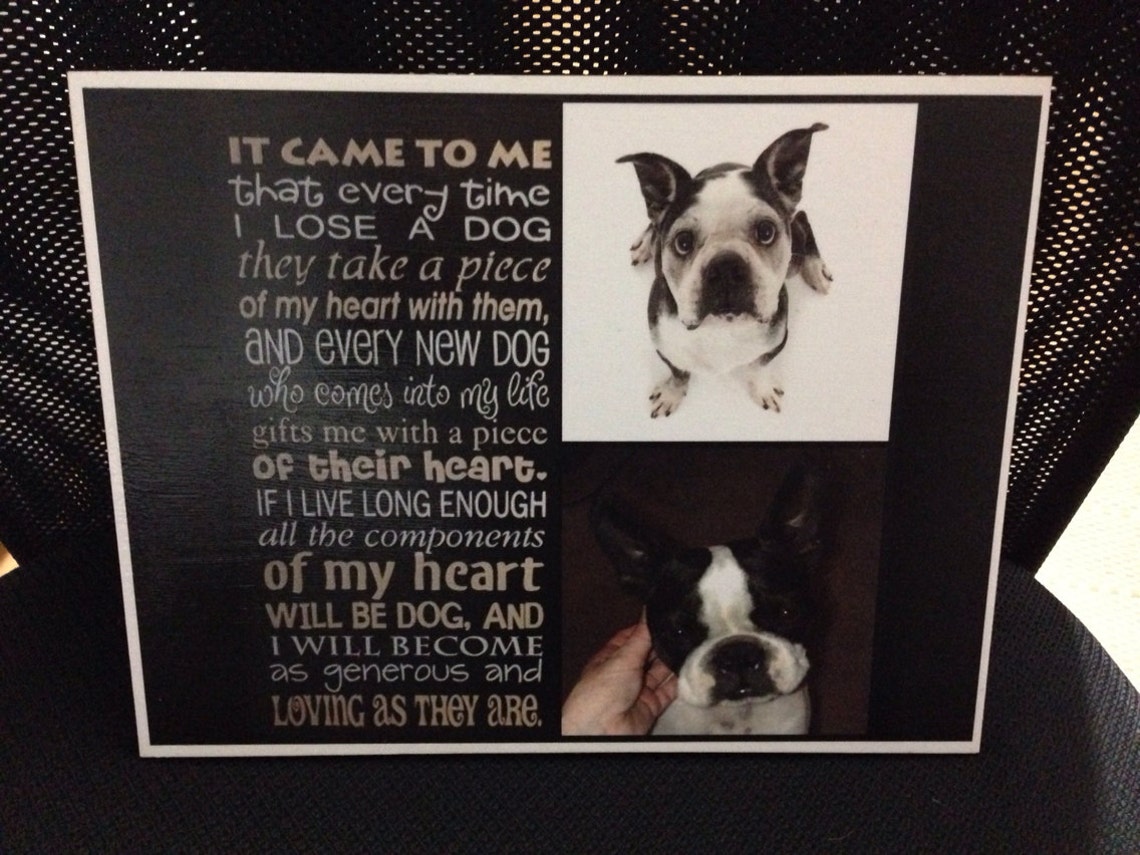 IT CAME TO ME
that every time
I LOSE A DOG
they take a piece
of my heart with them,
AND EVERY NEW DOG
who comes into my life
gifts me with a piece
of their heart.
IF I LIVE LONG ENOUGH
all the components
of my heart
WILL BE DOG, AND
I WILL BECOME
as generous and
LOVING AS THEY ARE.